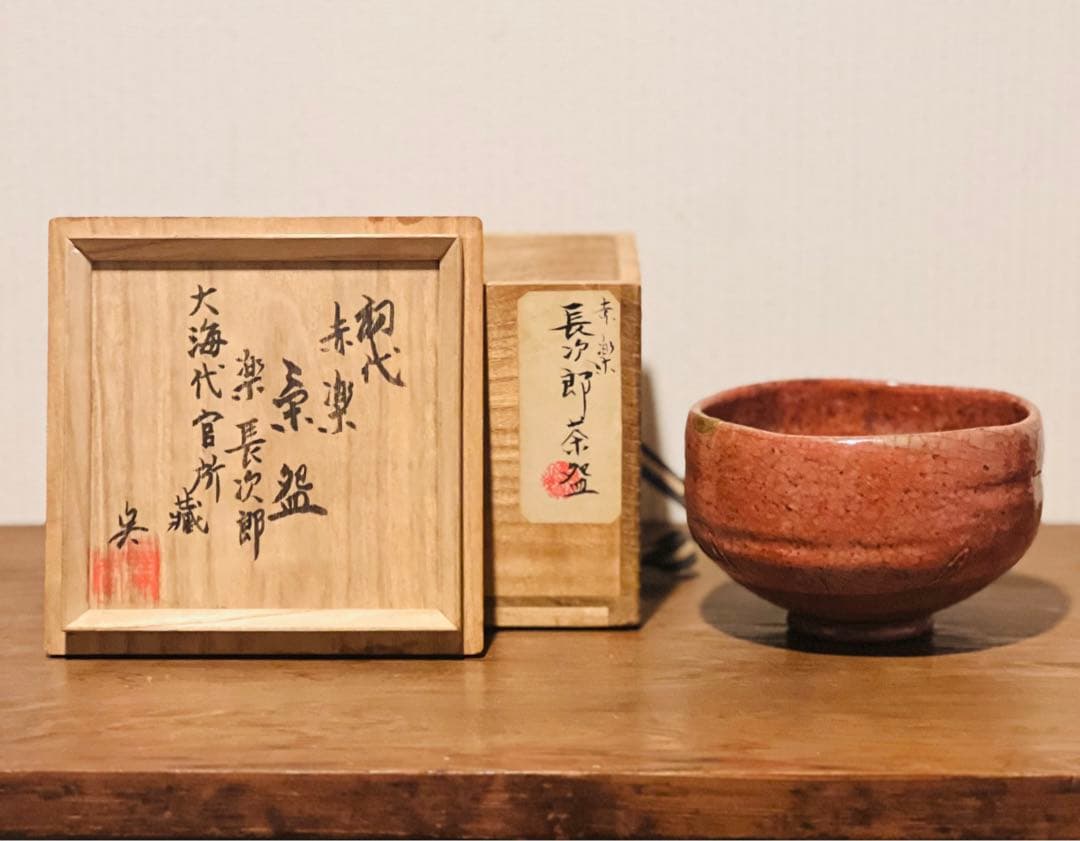 初代
赤楽
茶盌
楽 長次郎
大海代官所
蔵
赤楽
長次郎茶盌